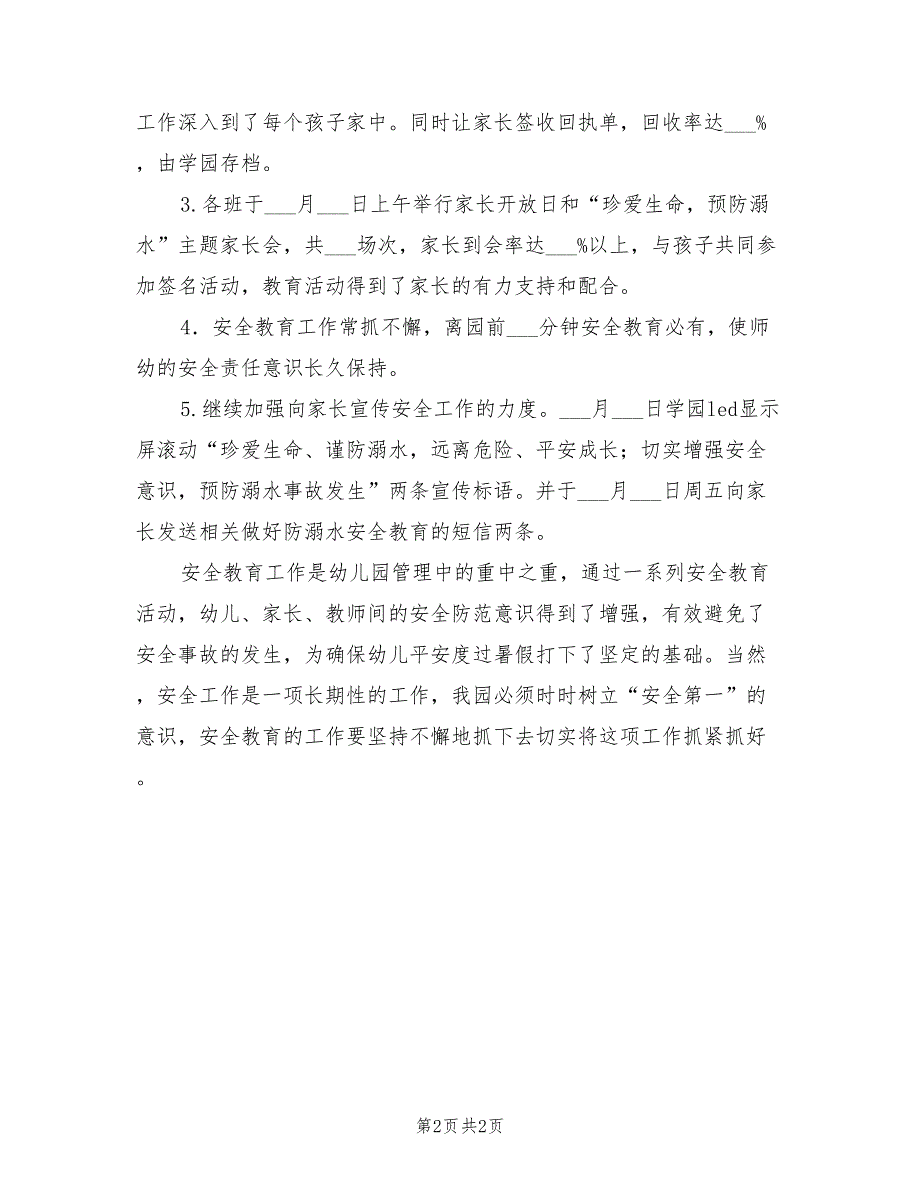 工作深入到了每个孩子家中。同时让家长签收回执单，回收率达___%
，由学园存档。
3.各班于___月___日上午举行家长开放日和“珍爱生命，预防溺
水”主题家长会，共___场次，家长到会率达___%以上，与孩子共同参
加签名活动，教育活动得到了家长的有力支持和配合。
4．安全教育工作常抓不懈，离园前___分钟安全教育必有，使师
幼的安全责任意识长久保持。
5.继续加强向家长宣传安全工作的力度。___月___日学园led显示
屏滚动“珍爱生命、谨防溺水，远离危险、平安成长；切实增强安全
意识，预防溺水事故发生”两条宣传标语。并于___月___日周五向家
长发送相关做好防溺水安全教育的短信两条。
安全教育工作是幼儿园管理中的重中之重，通过一系列安全教育
活动，幼儿、家长、教师间的安全防范意识得到了增强，有效避免了
安全事故的发生，为确保幼儿平安度过暑假打下了坚定的基础。当然
，安全工作是一项长期性的工作，我园必须时时树立“安全第一”的
意识，安全教育的工作要坚持不懈地抓下去切实将这项工作抓紧抓好
。
第2页 共2页